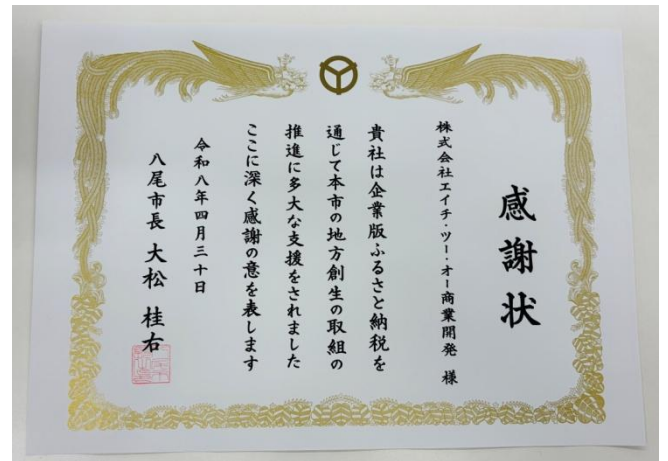 感謝状
株式会社エイチ・ツー・オー商業開発 様
貴社は企業版ふるさと納税を
通じて本市の地方創生の取組の
推進に多大な支援をされました
ここに深く感謝の意を表します
令和八年四月三十日
八尾市長 大松 桂右